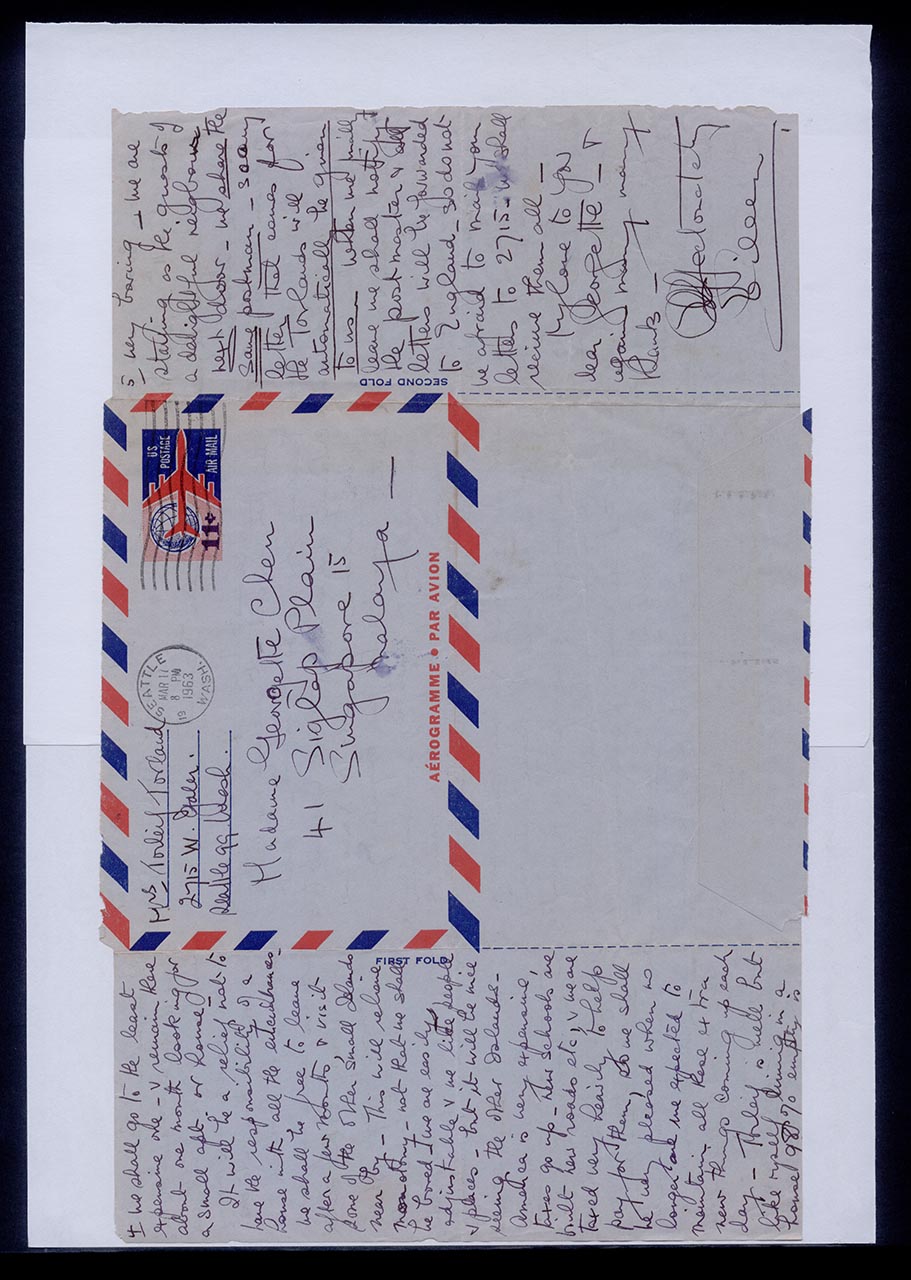 Mrs Torleif Torland
2715 W. Galer.
Seattle 99 Wash.
SEATTLE
MAR 11
8 PM
1963
WASH.
US
POSTAGE
AIR MAIL
11¢
Madame Georgette Chen
41 Siglap Plain
Singapore 15
Malaya —
AÉROGRAMME • PAR AVION
FIRST FOLD
4 we shall go to the least
expensive one - & remain there
about one month looking for
a small apt or house -
It will be a relief not to
have the responsibility of a
home with all the encumbrances -
we shall be free to leave
after a few months & visit
some of the other small Islands
near by - This will relieve
monotony - not that we shall
be bored - we are easily
adjustable & we like people
& places - but it will be nice
seeing the other Islands -
America is very expensive,
taxes go up - new schools are
built new roads etc, & we are
taxed very heavily to help
pay for them, so we shall
be very pleased when no
longer are we expected to
maintain all these extra
new things coming up each
day - Thorleif is well but
like myself living in a
house 98% empty is
SECOND FOLD
5 very boring - we are
staying as the guests of
a delightful neighbour
next door - we share the
same postman - so any
letter that comes for
the Torlands will
automatically be given
to us - when we will
leave we shall notify
the postmaster & all
letters will be forwarded
to England - so do not
be afraid to mail your
letters to 2715 - we shall
receive them all -
My love to you
dear Georgette - &
again many many
thanks -
Affectionately
Eileen